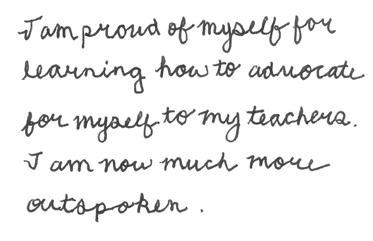 I am proud of myself for
learning how to advocate
for myself to my teachers.
I am now much more
outspoken.